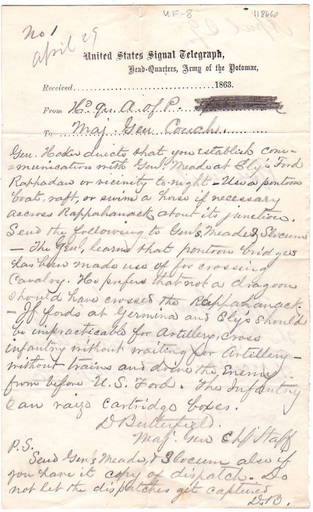 No 1
April 29
UF-8
118660
United States Signal Telegraph,
Head-Quarters, Army of the Potomac,
Received 1863.
From Hd. Qr. A. of P.
To Maj. Gen Couch.
Gen. Hooker directs that you establish com-
munication with Genl. Meade at Ely's Ford
Rappadan or vicinity to-night - Use a pontoon
boat, raft, or swim a horse if necessary
accross Rappahanock about its junction.
Send the following to Gen's Meade & Slocum
- The Gen, learns that pontoon bridges
has been made use of for crossing
Cavalry. He prefers that not a dragoon
should have crossed the Rappahanock.
- If fords at Germina and Ely's should
be impracticable for Artillery, cross
infantry without waiting for Artillery -
without trains and drive the Enemy
from before U.S. Ford. The Infantry
can raize cartridge boxes.
D Butterfiel
Maj. Gen Chf Staff
P.S.
Send Gen's Meade, & Slocum also if
you have it copy of dispatch. Do
not let the dispatches get captured
D.B.